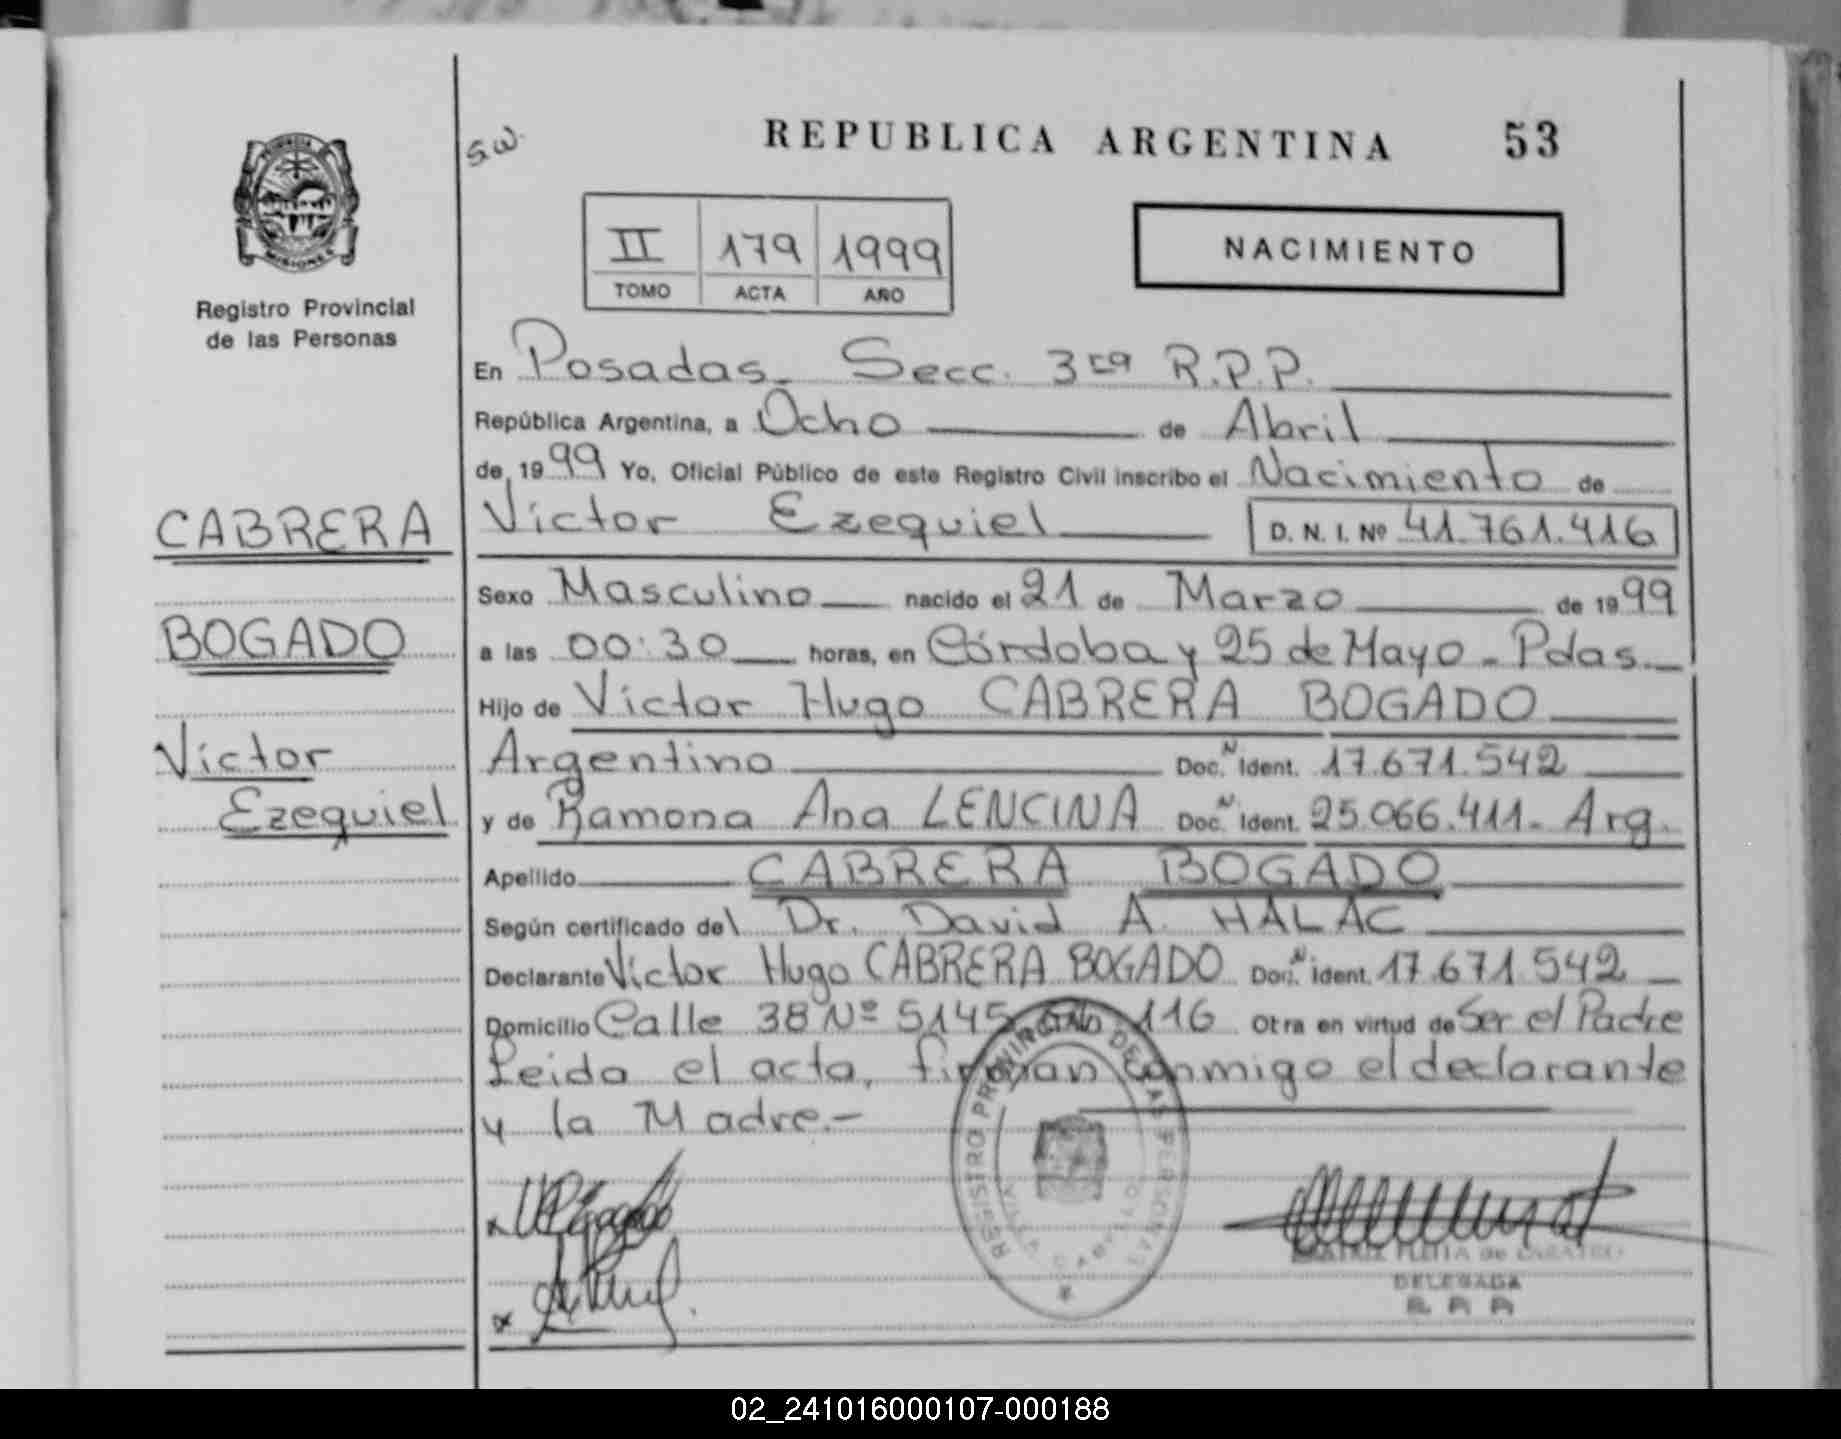 REPUBLICA ARGENTINA 53
S.W.
PROVINCIA
MISIONES
Registro Provincial
de las Personas
II 179 1999
TOMO ACTA AÑO
NACIMIENTO
En Posadas. Secc. 3ra R.P.P.
República Argentina, a Ocho de Abril
de 1999 Yo, Oficial Público de este Registro Civil inscribo el Nacimiento de
CABRERA
Victor Ezequiel D. N. I. Nº 41.761.416
Sexo Masculino nacido el 21 de Marzo de 1999
BOGADO
a las 00:30 horas, en Córdoba y 25 de Mayo - Pdas.
Hijo de Victor Hugo CABRERA BOGADO
Victor
Argentino Doc. N Ident. 17.671.542
Ezequiel
y de Ramona Ana LENCINA Doc. N Ident. 25.066.411.- Arg.
Apellido CABRERA BOGADO
Según certificado del Dr. David A. HALAC
Declarante Victor Hugo CABRERA BOGADO Doc. N ident. 17.671.542
Domicilio Calle 38 Nº 5145 116 Otra en virtud de Ser el Padre
Leida el acta, firman conmigo el declarante
y la Madre.-
REGISTRO PROVINCIAL DE LAS PERSONAS
DELEGADA
R. P. P.
02_241016000107-000188